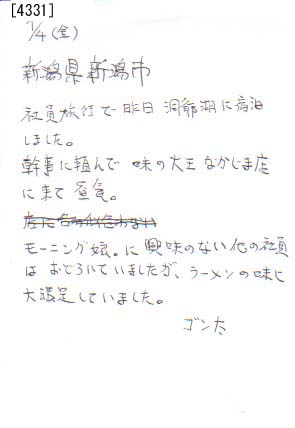 [4331]
7/4(金)
新潟県新潟市
社員旅行で昨日 洞爺湖に宿泊
しました。
幹事に頼んで 味の大王 なかじま店
に来て 昼食。
モーニング娘。に興味のない他の社員
は おどろいていましたが、ラーメンの味に
大満足していました。
ゴンた